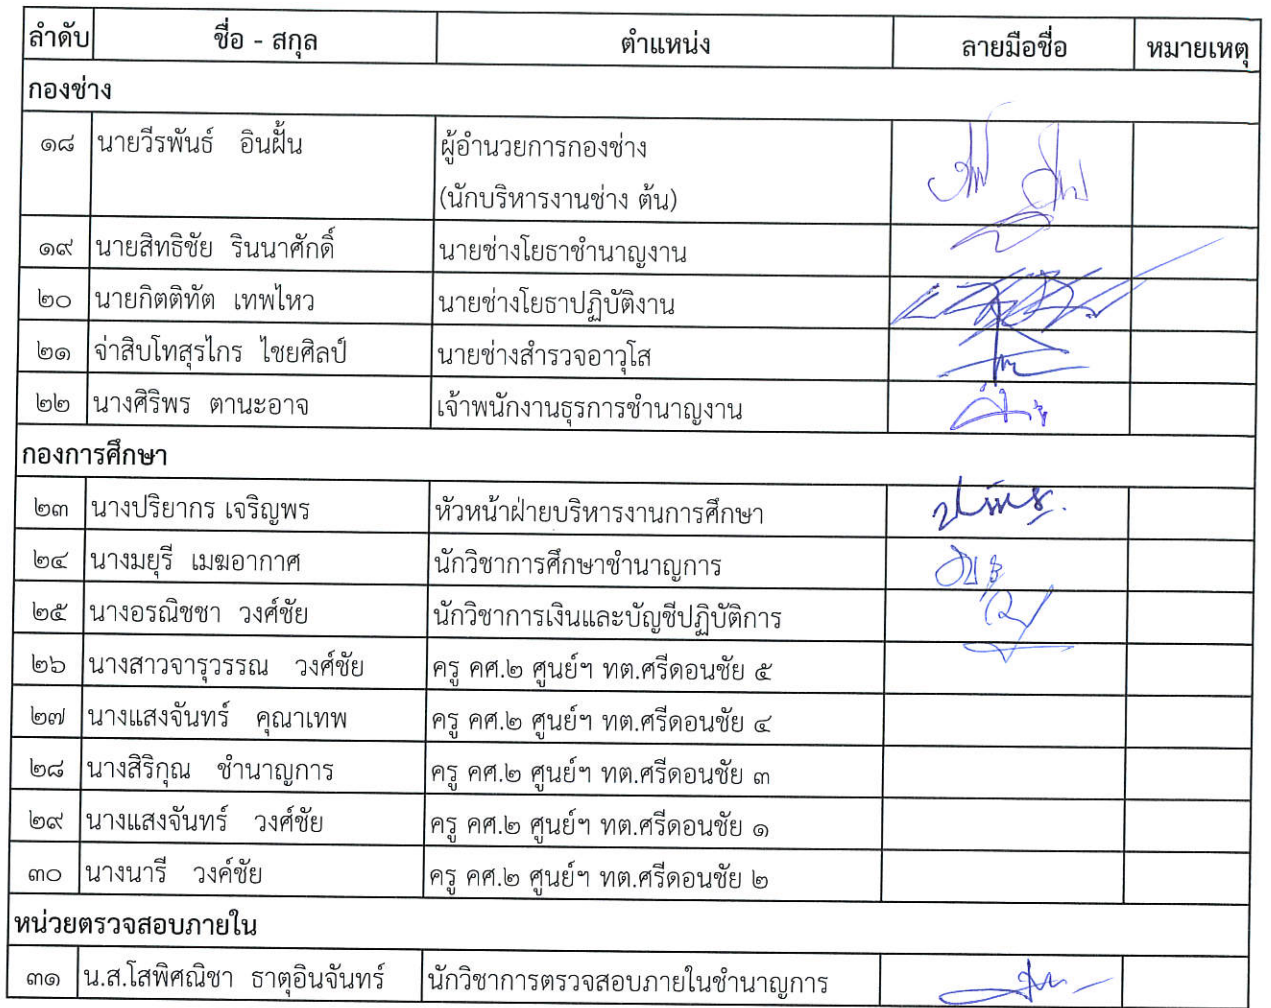 ลำดับ ชื่อ - สกุล ตำแหน่ง ลายมือชื่อ หมายเหตุ
กองช่าง
๑๘ นายวีรพันธ์ อินฝั้น ผู้อำนวยการกองช่าง
(นักบริหารงานช่าง ต้น)
๑๙ นายสิทธิชัย รินนาศักดิ์ นายช่างโยธาชำนาญงาน
๒๐ นายกิตติทัต เทพไหว นายช่างโยธาปฏิบัติงาน
๒๑ จ่าสิบโทสุรไกร ไชยศิลป์ นายช่างสำรวจอาวุโส
๒๒ นางศิริพร ตานะอาจ เจ้าพนักงานธุรการชำนาญงาน
กองการศึกษา
๒๓ นางปริยากร เจริญพร หัวหน้าฝ่ายบริหารงานการศึกษา
๒๔ นางมยุรี เมฆอากาศ นักวิชาการศึกษาชำนาญการ
๒๕ นางอรณิชชา วงศ์ชัย นักวิชาการเงินและบัญชีปฏิบัติการ
๒๖ นางสาวจารุวรรณ วงศ์ชัย ครู คศ.๒ ศูนย์ฯ ทต.ศรีดอนชัย ๕
๒๗ นางแสงจันทร์ คุณาเทพ ครู คศ.๒ ศูนย์ฯ ทต.ศรีดอนชัย ๔
๒๘ นางสิริกุณ ชำนาญการ ครู คศ.๒ ศูนย์ฯ ทต.ศรีดอนชัย ๓
๒๙ นางแสงจันทร์ วงศ์ชัย ครู คศ.๒ ศูนย์ฯ ทต.ศรีดอนชัย ๑
๓๐ นางนารี วงค์ชัย ครู คศ.๒ ศูนย์ฯ ทต.ศรีดอนชัย ๒
หน่วยตรวจสอบภายใน
๓๑ น.ส.โสพิศณิชา ธาตุอินจันทร์ นักวิชาการตรวจสอบภายในชำนาญการ